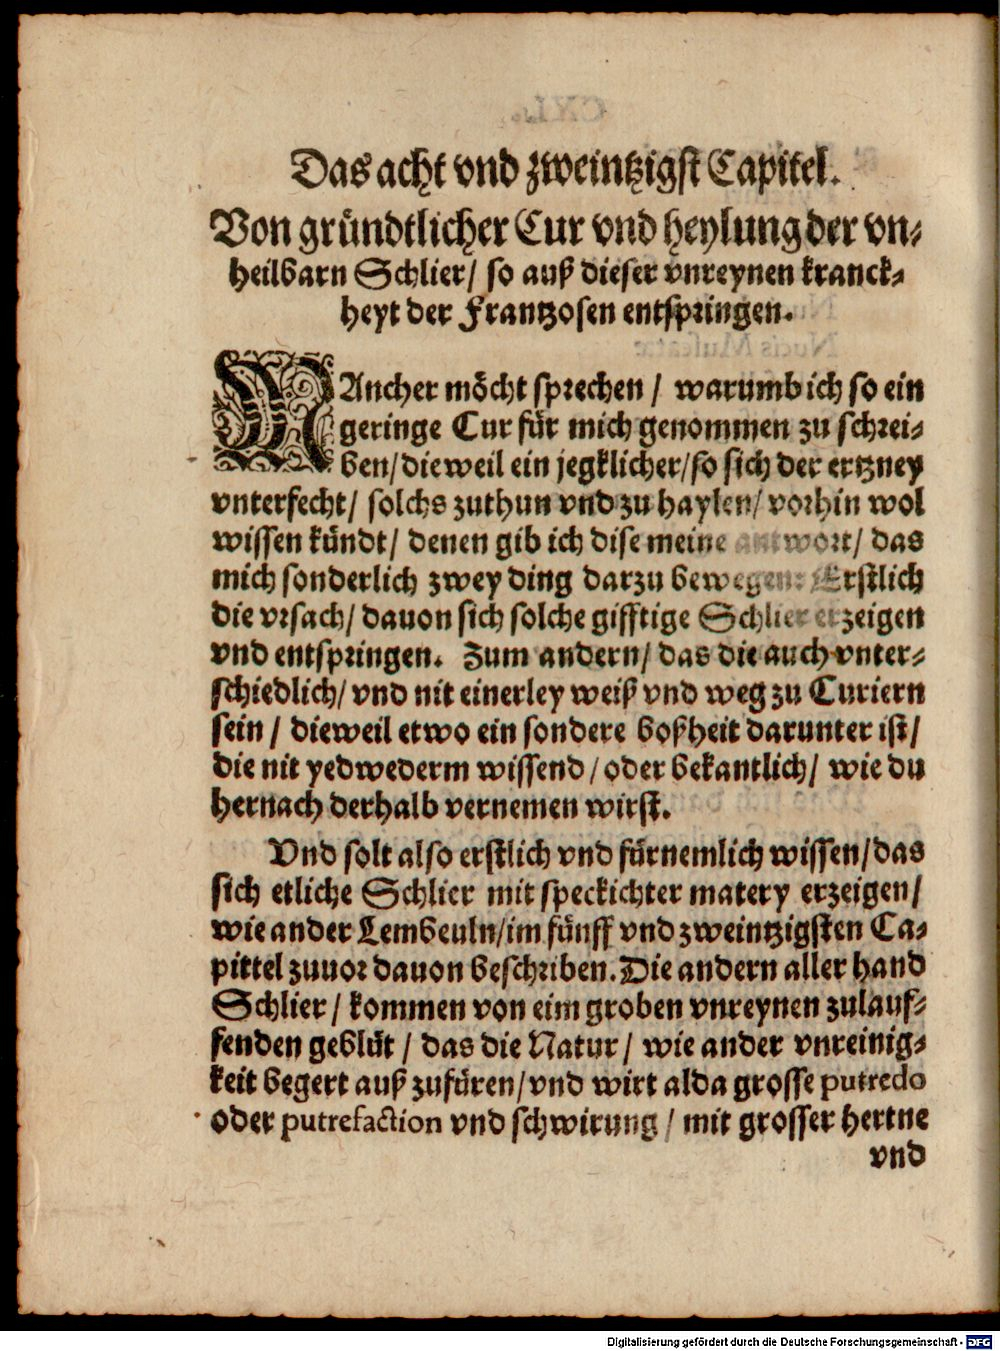 Das acht vnd zweintzigst Capitel.
Von gründtlicher Cur vnd heylung der vn⸗
heilbarn Schlier/ so auß dieser vnreynen kranck⸗
heyt der Frantzosen entspringen.
MAncher möcht sprechen / warumb ich so ein
geringe Cur für mich genommen zu schrei⸗
ben/ dieweil ein jegklicher/ so sich der ertzney
vnterfecht/ solchs zuthun vnd zu haylen/ vorhin wol
wissen kündt/ denen gib ich dise meine antwort/ das
mich sonderlich zwey ding darzu bewegen: Erstlich
die vrsach/ dauon sich solche gifftige Schlier erzeigen
vnd entspringen. Zum andern/ das die auch vnter⸗
schiedlich/ vnd nit einerley weiß vnd weg zu Curiern
sein / dieweil etwo ein sondere boßheit darunter ist/
die nit yedwederm wissend / oder bekantlich/ wie du
hernach derhalb vernemen wirst.
Vnd solt also erstlich vnd fürnemlich wissen/ das
sich etliche Schlier mit speckichter matery erzeigen/
wie ander Lembeuln/ im fünff vnd zweintzigsten Ca⸗
pittel zuuor dauon beschriben. Die andern aller hand
Schlier / kommen von eim groben vnreynen zulauf⸗
fenden geblüt / das die Natur / wie ander vnreinig⸗
keit begert auß zufüren/ vnd wirt alda grosse putredo
oder putrefaction vnd schwirung / mit grosser hertne
vnd
Digitalisierung gefördert durch die Deutsche Forschungsgemeinschaft - DFG